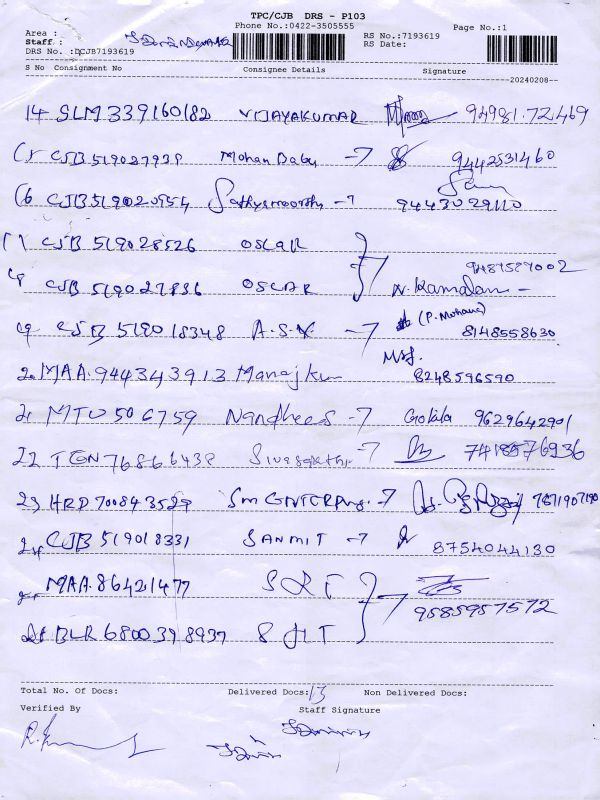 TPC/CJB DRS - P103
Phone No.:0422-3505555 Page No.:1
Area :
Staff. : RS No.:7193619
DRS No. :DCJB7193619 RS Date:
S No Consignment No Consignee Details Signature
20240208
14 SLM339160182 VIJAYAKUMAR 94981.72.469
15 CJB 519027939 Mohan Babu 9442531460
16 CJB519020954 Sathyamoorthy 9443029110
17 CJB 519028526 OSCAR 9487587002
18 CJB 519027836 OSCAR N. Kamalam
19 CJB 519018348 A.S.K (P. Mohana) 8148558630
20 MAA.944343913 Manoj kum 8248596590
21 MTU 506759 Nandhees Gokila 9629642901
22 TCN 76866438 Sivasakthi 7418576936
23 HRD 700843529 Sm ENTERPris. 7871907190
24 CJB 519018331 SANMIT 8754044130
25 MAA.86421477 S R T
9585957572
26 BLR 6800398937 S H T
Total No. Of Docs: Delivered Docs:13 Non Delivered Docs:
Verified By Staff Signature